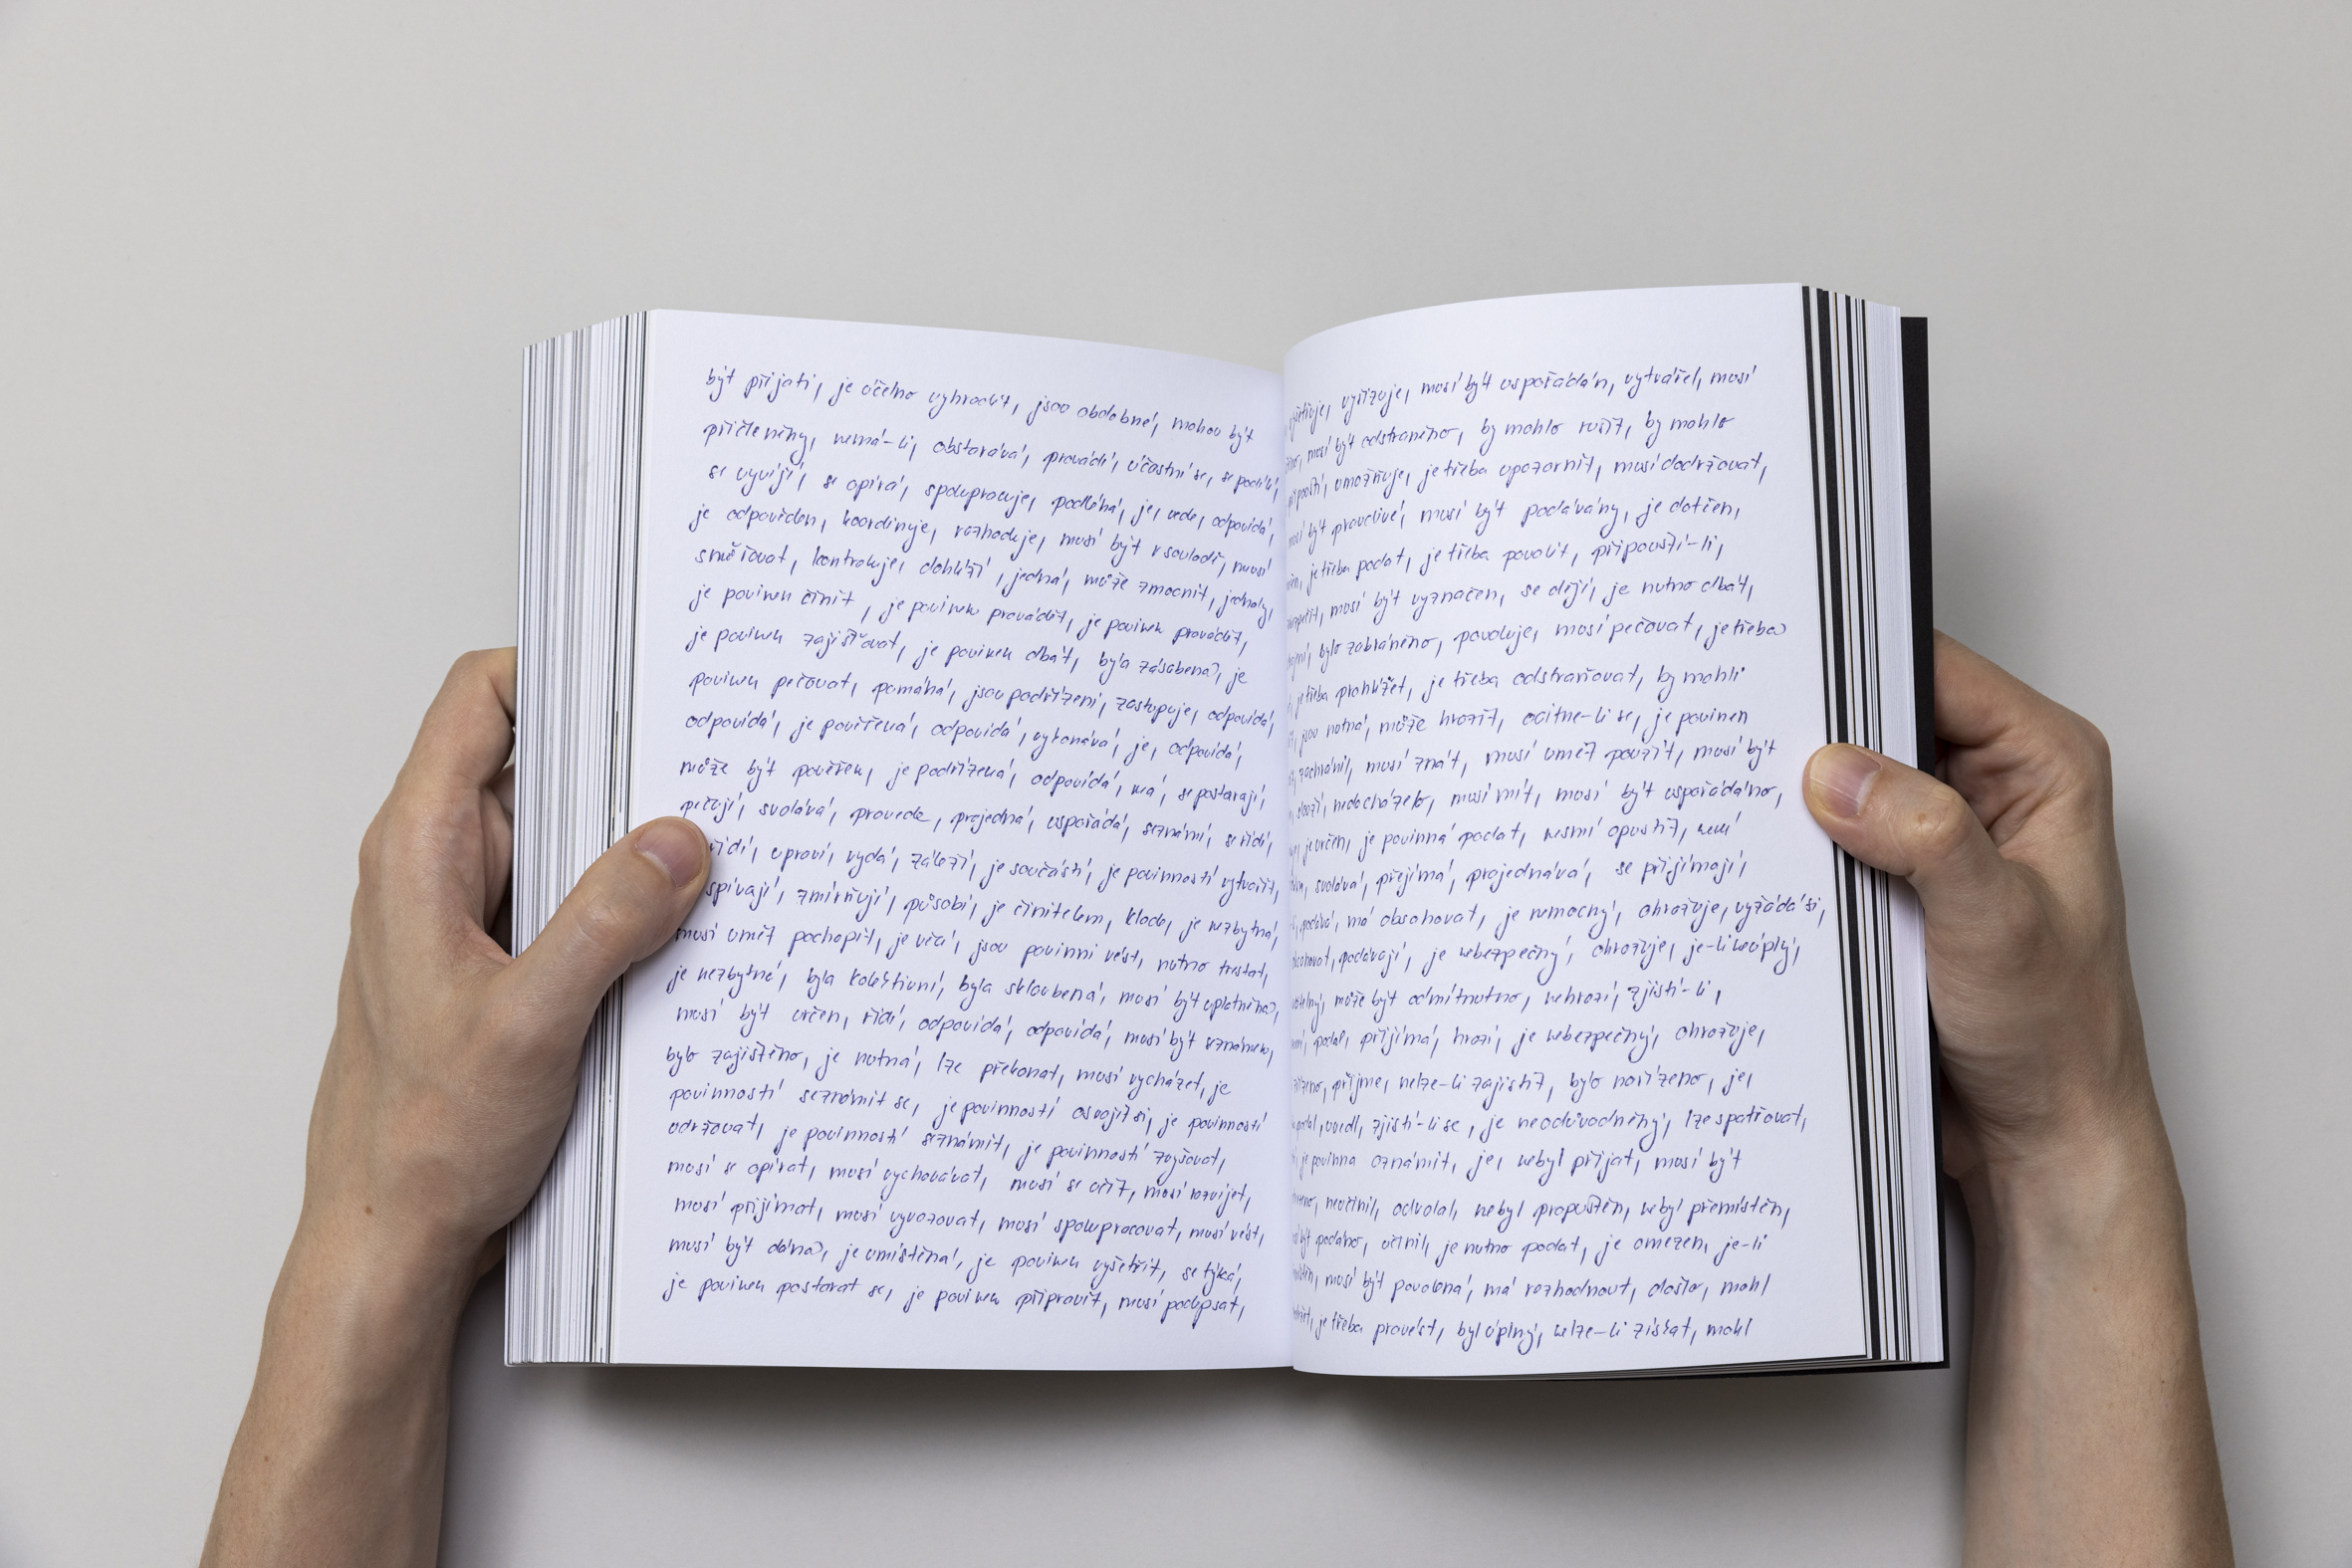 být přijati, je účelno vyhradit, jsou obdobné, mohou být
přičleněny, nemá-li, obstarává, provádí, účastní se, se podílí,
se vyvíjí, se opírá, spolupracuje, podléhá, je, vede, odpovídá,
je odpověden, koordinuje, rozhoduje, musí být v souladě, musí
směřovat, kontroluje, dohlíží, jedná, může zmocnit, jednaly,
je povinen činit, je povinen provádět, je povinen provádět,
je povinen zajišťovat, je povinen dbát, byla zásobena, je
povinen pečovat, pomáhá, jsou podřízeni, zastupuje, odpovídá,
odpovídá, je pověřená, odpovídá, vykonává, je, odpovídá,
může být pověřen, je podřízená, odpovídá, má, se postarají,
pečují, svolává, provede, projedná, uspořádá, seznámí, se řídí,
řídí, upraví, vydá, záleží, je součástí, je povinností vytvořit,
spívají, zmírňují, působí, je činitelem, klade, je nezbytná,
musí umět pochopit, je věcí, jsou povinni vést, nutno trestat,
je nezbytné, byla kolektivní, byla skloubená, musí být uplatněna,
musí být určen, řídí, odpovídá, odpovídá, musí být seznámen,
bylo zajištěno, je nutná, lze překonat, musí vycházet, je
povinností seznámit se, je povinností osvojit si, je povinností
udržovat, je povinností seznámit, je povinností zvyšovat,
musí se opírat, musí vychovávat, musí se učit, musí rozvíjet,
musí přijímat, musí vyvozovat, musí spolupracovat, musí vést,
musí být dána, je umístěna, je povinen vyšetřit, se týká,
je povinen postarat se, je povinen připravit, musí podepsat,
vyřizuje, musí být uspořádán, vytvářel, musí
musí být odstraněno, by mohlo rušit, by mohlo
umožňuje, je třeba upozornit, musí dodržovat,
být pravdivé, musí být podávány, je dotčen,
je třeba podat, je třeba povolit, připouští-li,
musí být vyznačen, se dějí, je nutno dbát,
bylo zabráněno, povoluje, musí pečovat, je třeba
je třeba prohlížet, je třeba odstraňovat, by mohli
jsou nutná, může hrozit, ocitne-li se, je povinen
zachránil, musí znát, musí umět použít, musí být
nedocházelo, musí mít, musí být uspořádáno,
je určen, je povinná podat, nesmí opustit, není
svolává, přejímá, projednává, se přijímají,
podává, má obsahovat, je nemocný, ohrožuje, vyžádá si,
podávají, je nebezpečný, ohrožuje, je-li neúplný,
může být odmítnuto, nehrozí, zjistí-li,
podal, přijímá, hrozí, je nebezpečný, ohrožuje,
přijme, nelze-li zajistit, bylo nařízeno, je,
uvedl, zjistí-li se, je neodůvodněný, lze spatřovat,
je povinna oznámit, je, nebyl přijat, musí být
neučinil, odvolal, nebyl propuštěn, nebyl přemístěn,
být podáno, učinil, je nutno podat, je omezen, je-li
musí být povolená, má rozhodnout, došlo, mohl
je třeba provést, byl úplný, nelze-li získat, mohl